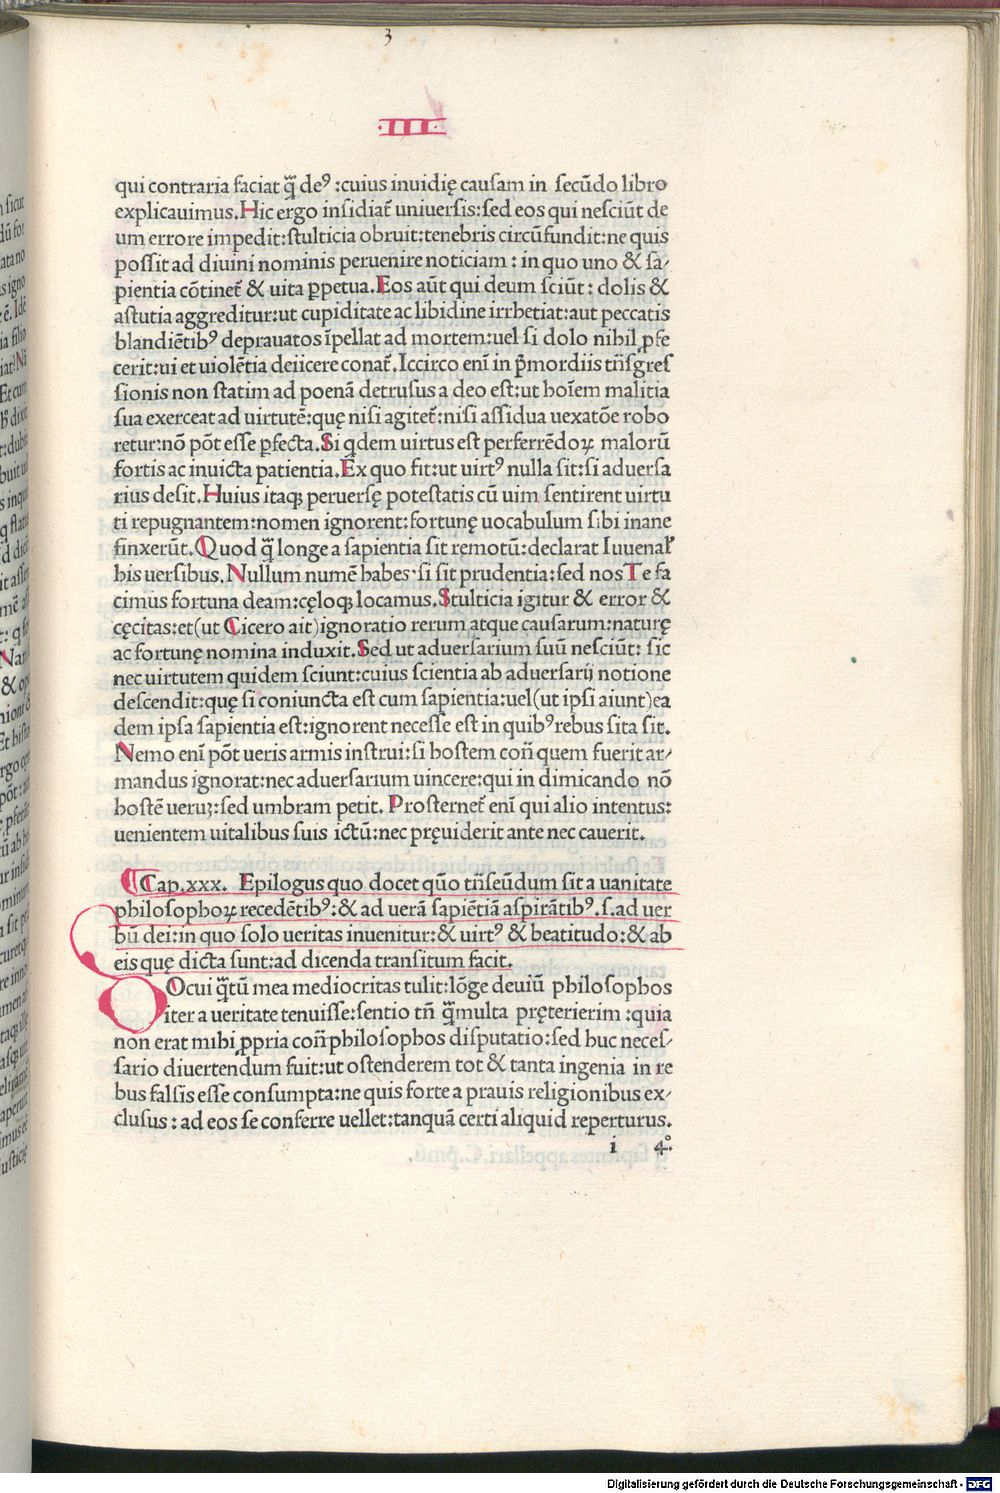 3
·III·
qui contraria faciat q̄̃ deꝰ :cuius inuidię cauſam in ſecūdo libro
explicauimus.Hic ergo inſidiat᷑ uniuerſis:ſed eos qui neſciūt de
um errore impedit:ſtulticia obruit:tenebris circūfundit:ne quis
poſſit ad diuini nominis peruenire noticiam : in quo uno & ſa⸗
pientia cōtinet᷑ & uita ꝑpetua.Eos aūt qui deum ſciūt : dolis &
aſtutia aggreditur:ut cupiditate ac libidine irrhetiat:aut peccatis
blandiētibꝰ deprauatos īpellat ad mortem:uel ſi dolo nihil ꝓfe
cerit:ui et uiolētia deiicere conat᷑.Iccirco enī in p̄mordiis trāſgreſ
ſionis non ſtatim ad poenā detruſus a deo eſt:ut hoīem malitia
ſua exerceat ad uirtutē:quę niſi agitet᷑:niſi aſſidua uexatōe robo
retur:nō pōt eſſe ꝑfecta.Si qdem uirtus eſt perferrēdoꝝ malorū
fortis ac inuicta patientia.Ex quo fit:ut uirtꝰ nulla ſit:ſi aduerſa
rius deſit.Huius itaqꝫ peruerſę poteſtatis cū uim ſentirent uirtu
ti repugnantem:nomen ignorent:fortunę uocabulum ſibi inane
finxerūt.Quod q̄̃ longe a ſapientia ſit remotū:declarat Iuuenal̓
his uerſibus.Nullum numē habes·ſi ſit prudentia:ſed nos Te fa
cimus fortuna deam:cęloqꝫ locamus.Stulticia igitur & error &
cęcitas:et(ut Cicero ait)ignoratio rerum atque cauſarum:naturę
ac fortunę nomina induxit.Sed ut aduerſarium ſuū neſciūt: ſic
nec uirtutem quidem ſciunt:cuius ſcientia ab aduerſarij notione
deſcendit:quę ſi coniuncta eſt cum ſapientia:uel(ut ipſi aiunt)ea
dem ipſa ſapientia eſt:ignorent neceſſe eſt in quibꝰ rebus ſita ſit.
Nemo enī pōt ueris armis inſtrui:ſi hoſtem con̄ quem fuerit ar⸗
mandus ignorat:nec aduerſarium uincere:qui in dimicando nō
hoſtē ueruꝫ:ſed umbram petit. Proſternet᷑ enī qui alio intentus:
uenientem uitalibus ſuis ictū:nec pręuiderit ante nec cauerit.
¶Cap.xxx. Epilogus quo docet quō tn̄ſeūdum ſit a uanitate
philoſophoꝝ recedētibꝰ:& ad uerā ſapiētiā aſpirātibꝰ.ſ.ad uer
bū dei:in quo ſolo ueritas inuenitur:& uirtꝰ & beatitudo:& ab
eis quę dicta ſunt:ad dicenda tranſitum facit.
DOcui q̄̃tū mea mediocritas tulit:lōge deuiū philoſophos
iter a ueritate tenuiſſe:ſentio tn̄ q̄̃multa pręterierim :quia
non erat mihi ꝓpria con̄ philoſophos diſputatio:ſed huc neceſ⸗
ſario diuertendum fuit:ut oſtenderem tot & tanta ingenia in re
bus falſis eſſe conſumpta:ne quis forte a prauis religionibus ex⸗
cluſus : ad eos ſe conferre uellet:tanquā certi aliquid reperturus.
i 4°.
Digitalisierung gefördert durch die Deutsche Forschungsgemeinschaft - DFG